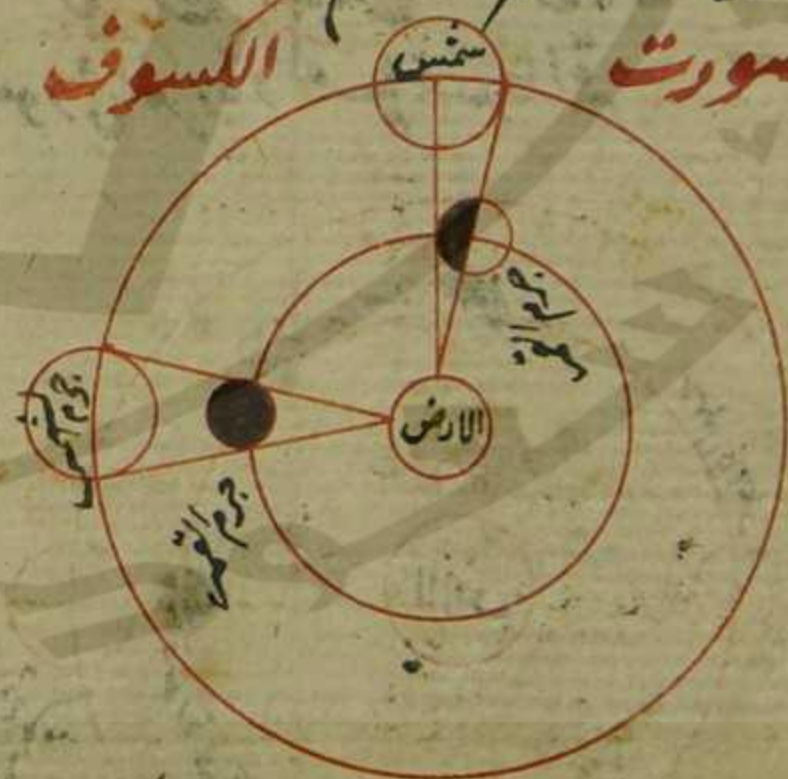 شمس
سورت الكسوف
جرم القمر
الارض
جرم الشمس
جرم القمر